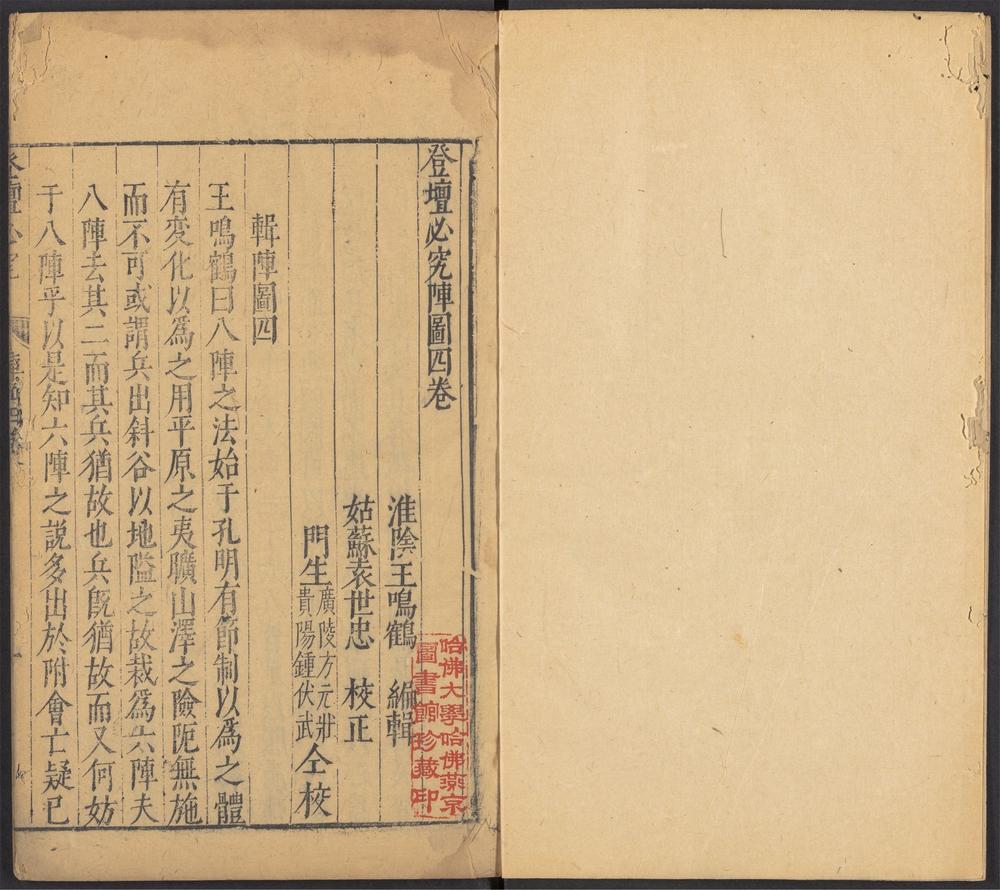 登壇必究陣圖四卷
淮陰王鳴鶴 編輯
姑蘇袁世忠 校正
門生廣陵方元壯貴陽鍾伏武仝校
輯陣圖四
王鳴鶴曰八陣之法始于孔明有節制以為之體
有变化以為之用平原之夷曠山澤之險阨無施
而不可或謂兵出斜谷以地隘之故裁為六陣夫
八陣去其二而其兵猶故也兵旣猶故而又何妨
于八陣乎以是知六陣之説多出於附會亡疑已
哈佛大學哈佛燕京
圖書館珍藏印